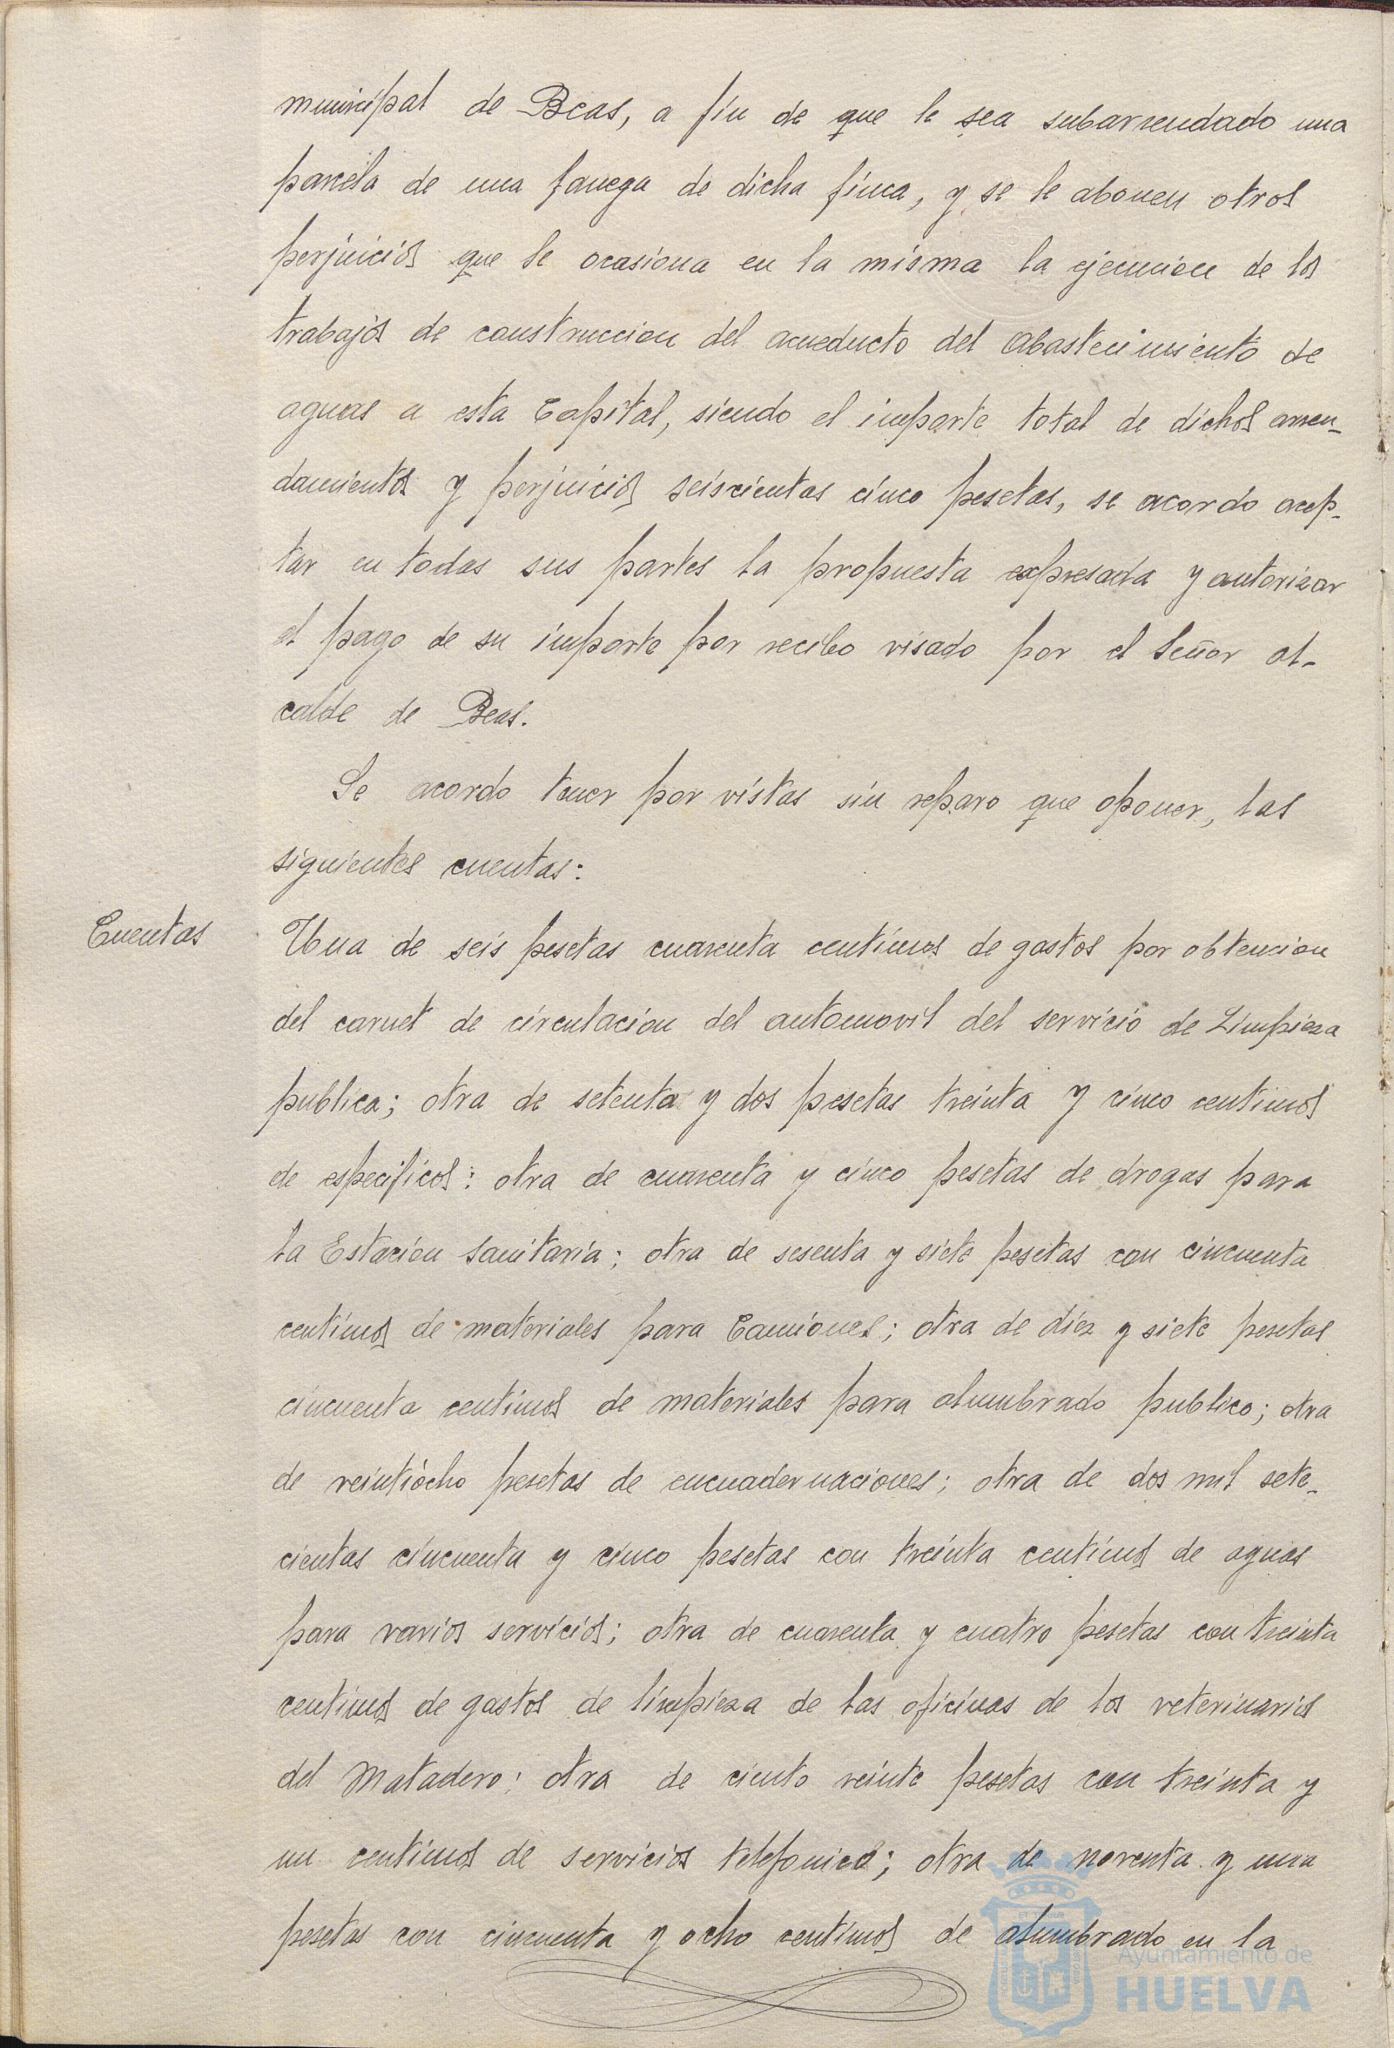 municipal de Beas, a fin de que le sea subarrendado una
parcela de una fanega de dicha finca, y se le abonen otros
perjuicios que le ocasiona en la misma la ejecucion de los
trabajos de construccion del acueducto del abastecimiento de
aguas a esta Capital, siendo el importe total de dichos arren-
damientos y perjuicios seiscientas cinco pesetas, se acordo acep-
tar en todas sus partes la propuesta expresada y autorizar
el pago de su importe por recibo visado por el Señor al-
calde de Beas.
Se acordo tener por vistas sin reparo que oponer, las
siguientes cuentas:
Cuentas
Una de seis pesetas cuarenta centimos de gastos por obtencion
del carnet de circulacion del automovil del servicio de Limpieza
publica; otra de setenta y dos pesetas treinta y cinco centimos
de especificos: otra de cuarenta y cinco pesetas de drogas para
la Estacion Sanitaria; otra de sesenta y siete pesetas con cincuenta
centimos de materiales para Camiones; otra de diez y siete pesetas
cincuenta centimos de materiales para alumbrado publico; otra
de veintiocho pesetas de encuadernaciones; otra de dos mil sete-
cientas cincuenta y cinco pesetas con treinta centimos de aguas
para varios servicios; otra de cuarenta y cuatro pesetas con treinta
centimos de gastos de limpieza de las oficinas de los veterinarios
del Matadero: otra de ciento veinte pesetas con treinta y
un centimos de servicios telefonico; otra de noventa y una
pesetas con cincuenta y ocho centimos de alumbrado en la
Ayuntamiento de
HUELVA